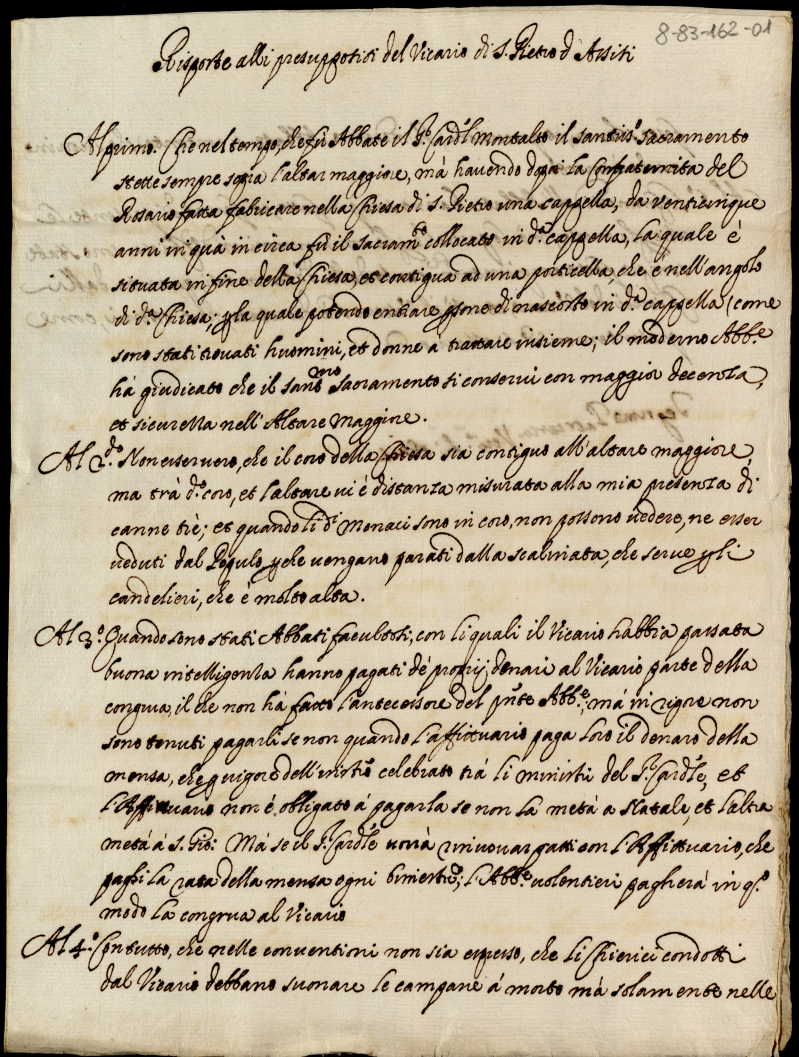 8-83-162-01
Risposte alli presuppositi del Vicario di S. Pietro d'Assisi
Al primo. Che nel tempo, che fù Abbate il Sr. Cardl Montalto il santiss.o sacramento
stette sempre sopra l'altar maggiore, mà havendo dopoi la Confraternita del
Rosario fatta fabricare nella Chiesa di S. Pietro una cappella, da venticinque
anni in quà in circa fù il sacram.to collocato in d.a cappella, la quale è
situata in fine della Chiesa, et contigua ad una porticella, che è nell'angolo
di d.a Chiesa; p la quale potendo entrare psone di nascosto in d.a cappella (come
sono stati trovati huomini, et donne à trattare insieme; il moderno Abb.e
hà giudicato che il sant.mo Sacramento si conservi con maggior decenza,
et sicurezza nell'Altare Maggiore.
Al 2.do Non esser vero, che il coro della Chiesa sia contiguo all'altare maggiore,
ma trà d.o coro, et l'altare vi è distanza misurata alla mia presenza di
canne trè; et quando li d.i Monaci sono in coro, non possono vedere, ne esser
veduti dal Popolo, p che vengano parati dalla scalinata, che serve p li
candelieri, che è molto alta.
Al 3.o Quando sono stati Abbati facultosi, con li quali il Vicario habbia passata
buona intelligenza hanno pagati de proprij denari al Vicario parte della
congrua, il che non hà fatto l'antecessore del pnte Abb.e, mà in rigore non
sono tenuti pagarli se non quando l'affittuario paga loro il denaro della
mensa, che p vigore dell'instro celebrato trà li ministri del Sr. Cardle, et
l'Affittuario non è obligato à pagarla se non la metà a Natale, et l'altra
metà à S. Gio: Mà se il Sr. Cardle vorrà rinovar patti con l'Affittuario, che
paghi la rata della mensa ogni bimestre; l'Abb.e volentieri pagherà in q.o
modo la congrua al Vicario
Al 4.o Con tutto, che nelle conventioni non sia espresso, che li Chierici condotti
dal Vicario debbano suonare le campane à morto mà solamente nelle